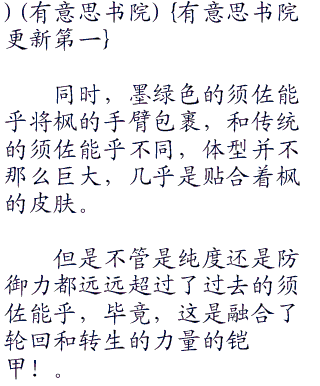 ) (有意思书院) {有意思书院
更新第一}
同时，墨绿色的须佐能
乎将枫的手臂包裹，和传统
的须佐能乎不同，体型并不
那么巨大，几乎是贴合着枫
的皮肤。
但是不管是纯度还是防
御力都远远超过了过去的须
佐能乎，毕竟，这是融合了
轮回和转生的力量的铠
甲！。